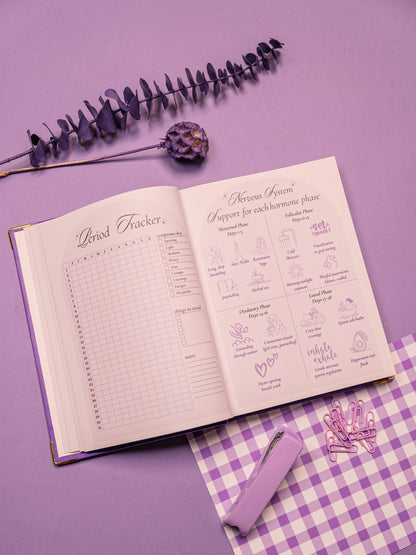 Period Tracker
J F M A M J J A S O N D
symptoms key
Spotting
Light
Medium
Heavy
Acne
Cramps
Cravings
Fatigue
Headache
things to avoid
notes
Nervous System
Support for each hormone phase
Menstrual Phase
Days 1-5
Long, deep
breathing
Slow Walks
Restorative
Yoga
Journaling
Herbal tea
Follicular Phase
Days 6-13
Cold
Showers
set
goals!
Visualization
or goal setting
Morning sunlight
exposure
Playful movement
(dance, walks)
Ovulatory Phase
Days 14-16
Grounding
through nature
Connection rituals
(girl time, journaling)
Heart opening
breath work
Luteal Phase
Days 17-28
Cozy deep
evenings
Epsom salt baths
inhale
exhale
Gentle nervous
system regulation
Magnesium rich
foods